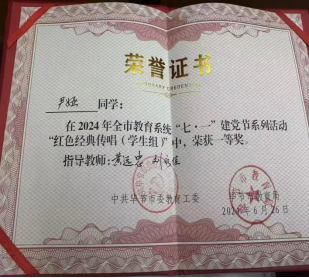 荣誉证书
同学：
在2024年全市教育系统“七·一”建党节系列活动
“红色经典传唱（学生组）”中，荣获一等奖。
指导教师：
中共毕节市委教育工委 毕节市教育局
2024年6月26日